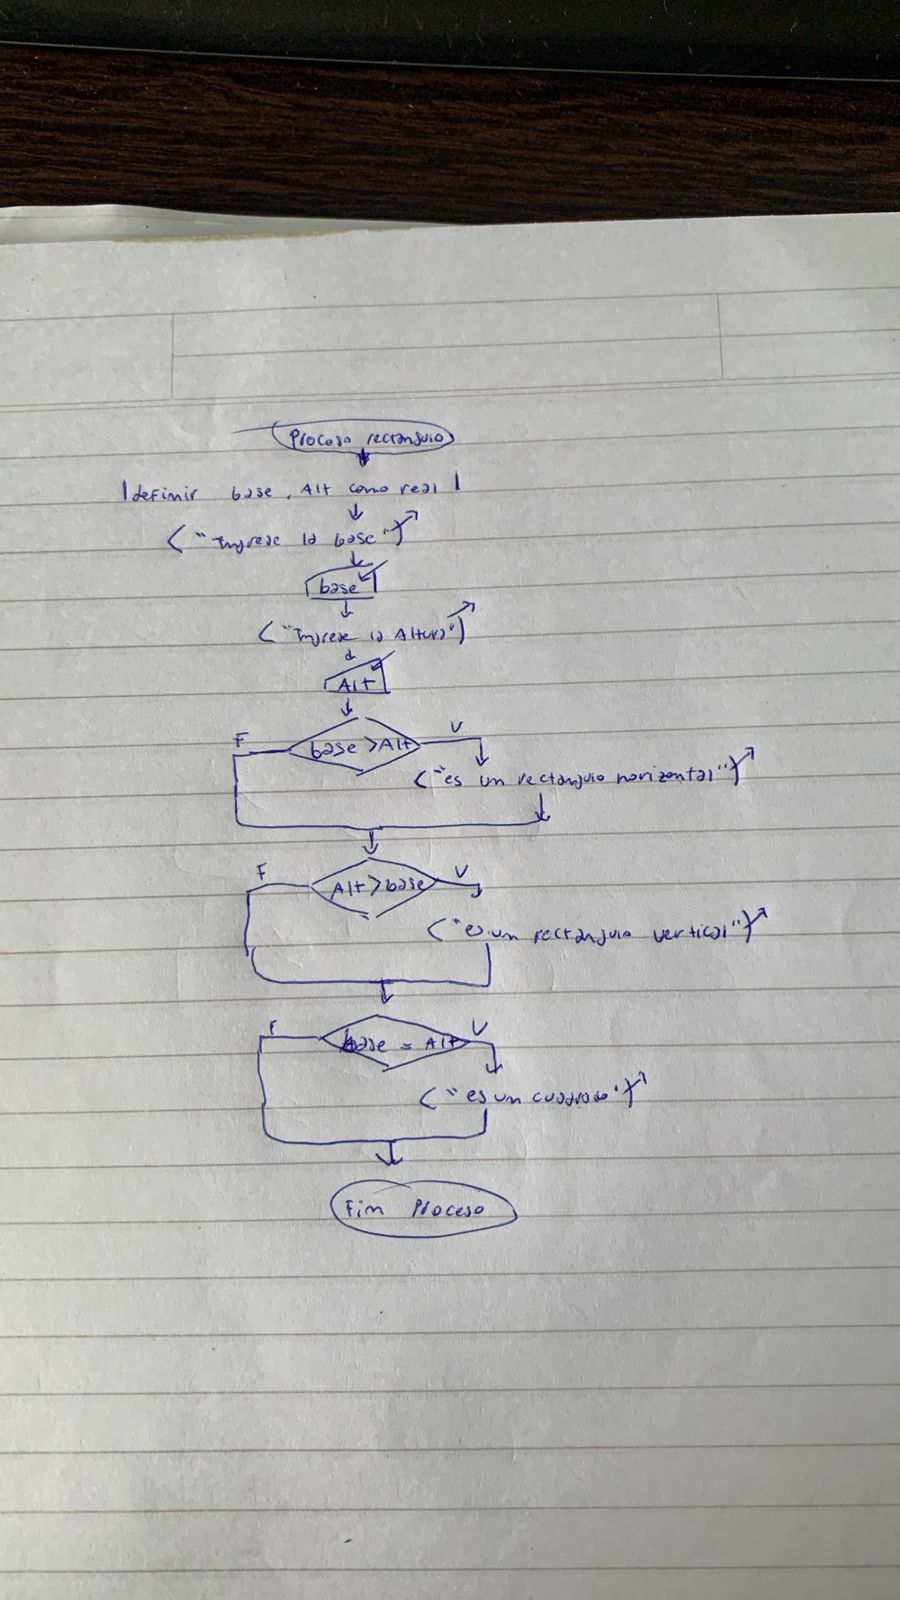 Proceso rectangulo
definir base, Alt como real
"Ingrese la base"
base
"Ingrese la Altura"
Alt
F base > Alt V
"es un rectangulo horizontal"
F Alt > base V
"es un rectangulo vertical"
F base = Alt V
"es un cuadrado"
Fin Proceso